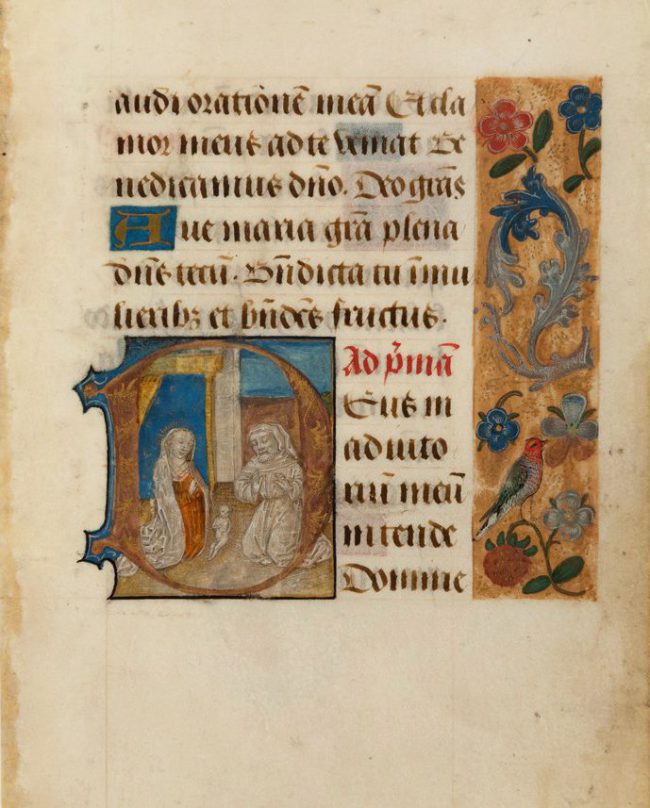 audi orationē meā Et cla
mor meus ad te veniat Be
nedicamus dn̄o. Deo grās
Aue maria grā plena
dn̄s tecū. Bn̄dicta tu ī mu
lieribꝫ et bn̄dcūs fructus.
Ad p̄mā
Deus in
adiuto
riū meū
intende
Domine